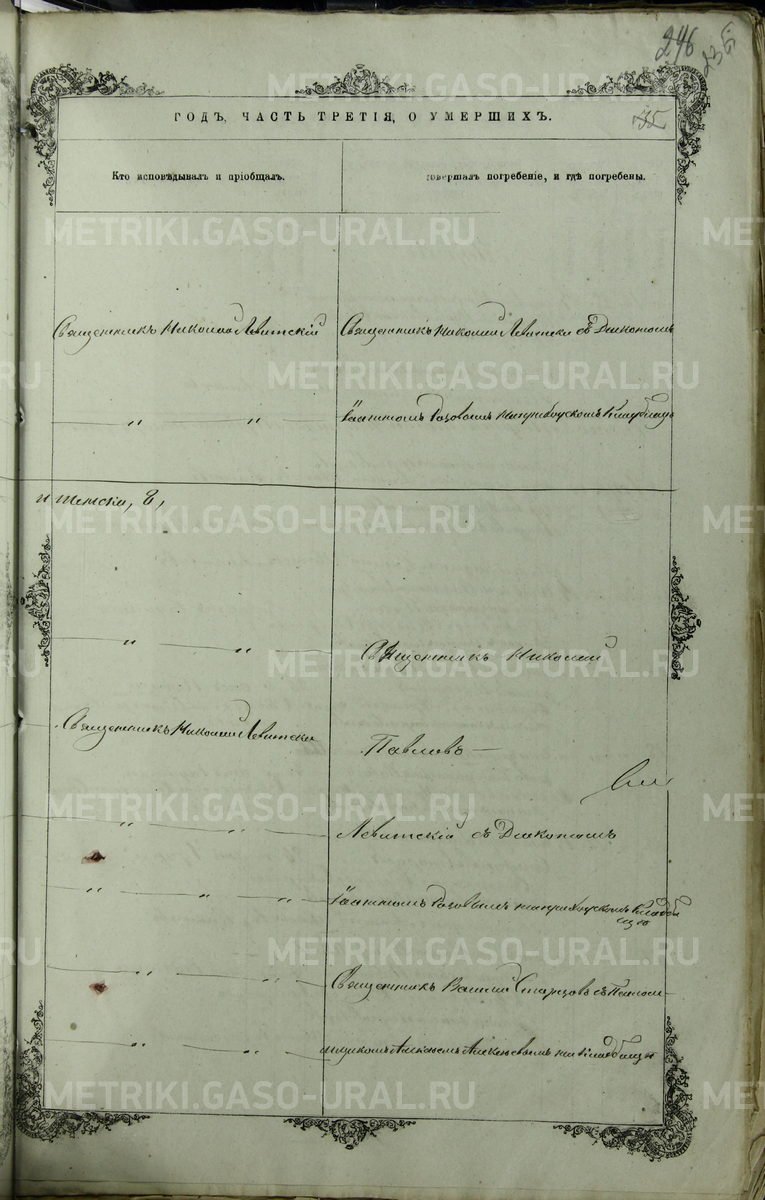 246
235
ГОДЪ, ЧАСТЬ ТРЕТІЯ, О УМЕРШИХЪ.
35
Кто исповѣдывалъ и пріобщалъ.
совершалъ погребеніе, и гдѣ погребены.
METRIKI.GASO-URAL.RU
Священникъ Николай Левитскій
Священникъ Николай Левитскій съ Диакономъ
" "
Іоанномъ Розовымъ на приходскомъ кладбищѣ
и женска, 8,
" "
Священникъ Николай
Священникъ Николай Левитскій
Павловъ —
" "
Левитскій съ Диакономъ
" " "
Іоанномъ Розовымъ на приходскомъ кладби
щѣ
" "
Священникъ Василій Старцовъ съ
" "
Алексѣемъ Алексѣевымъ на кладбищѣ